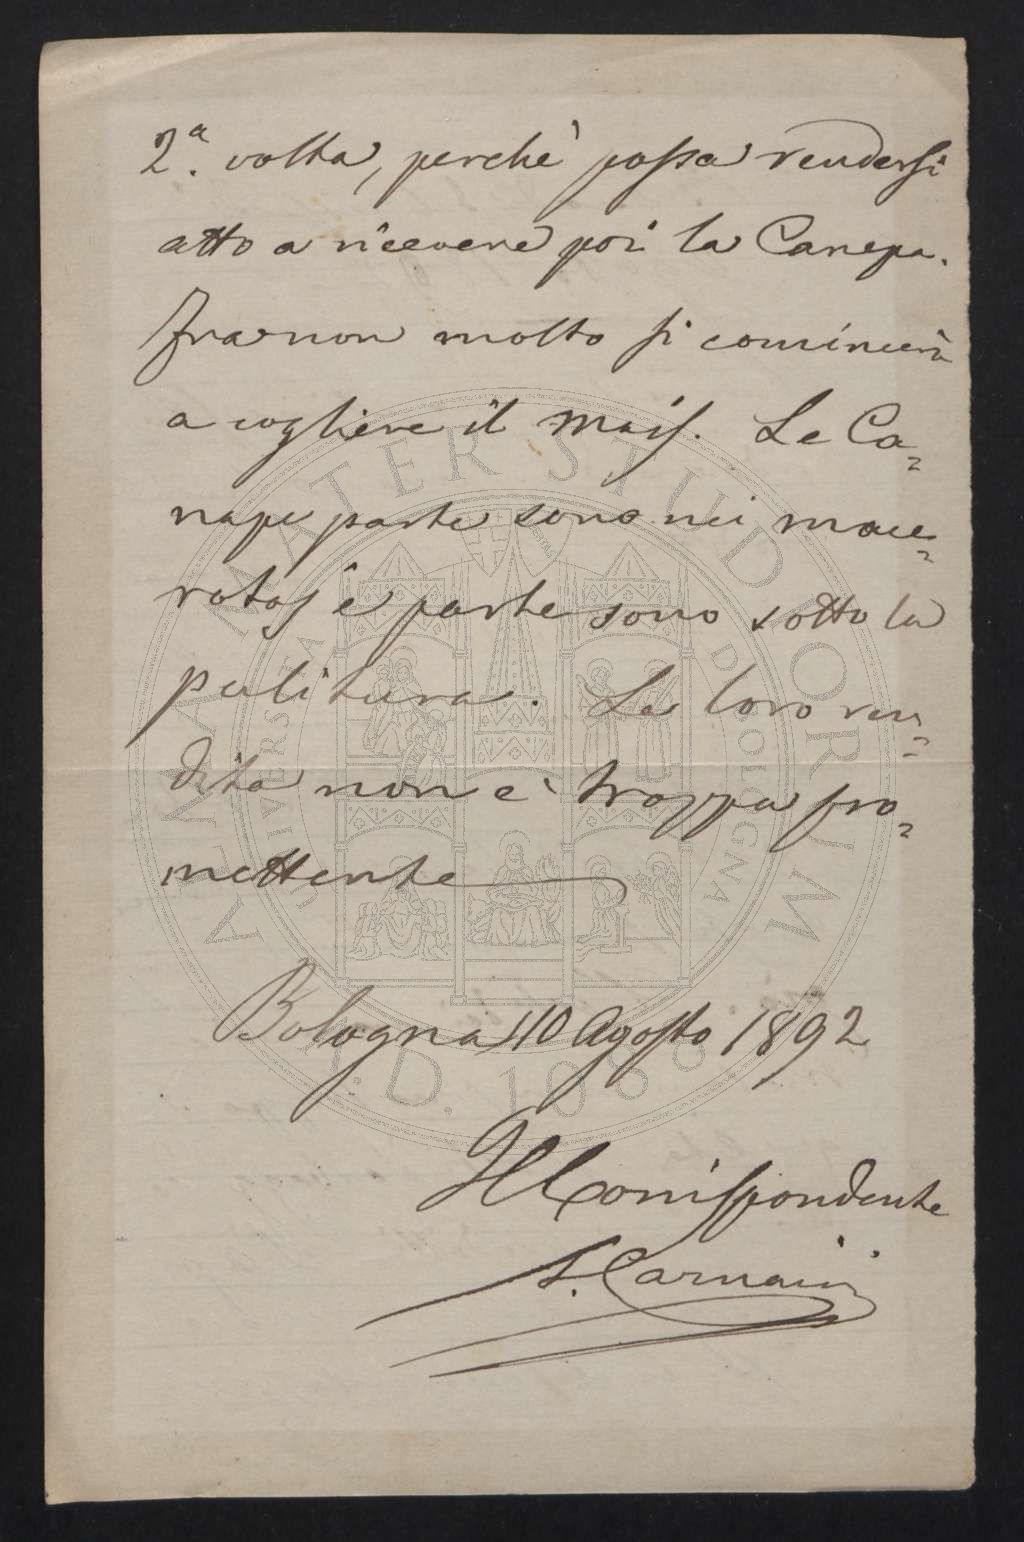 2.a volta, perchè possa rendersi
atto a ricevere poi la Canepa.
Fra non molto si comincerà
a cogliere il Mais. Le Ca=
nape parte sono nei mace=
ratoj e parte sono sotto la
pulitura. La loro ren=
dita non è troppa pro=
mettente
Bologna 10 Agosto 1892
Il Corrispondente
ALMA MATER STUDIORUM
A.D. 1088
UNIVERSITÀ DI BOLOGNA